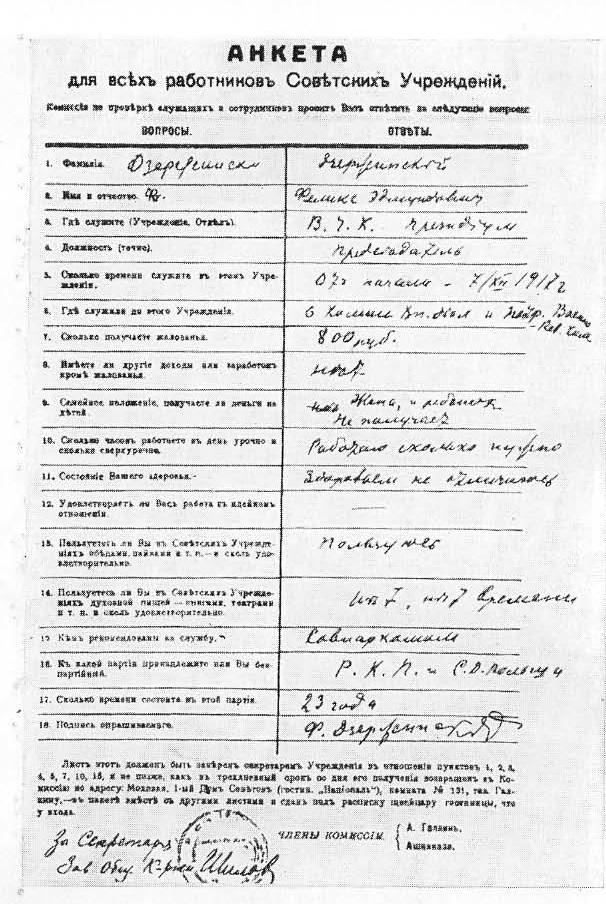 АНКЕТА
для всѣхъ работниковъ Совѣтскихъ Учрежденій.
Комиссія по провѣркѣ служащихъ и сотрудниковъ проситъ Васъ отвѣтить на слѣдующіе вопросы:
ВОПРОСЫ. ОТВѢТЫ.
1. Фамилія. Дзержински Дзержинской
2. Имя и отчество. Фе. Феликс Эдмундович
3. Гдѣ служите (Учрежденіе, Отдѣлъ). В. Ч. К. президиум
4. Должность (точно). председатель
5. Сколько времени служите въ этомъ Учре-
жденіи. От начала - 7/XII 1917 г
6. Гдѣ служили до этого Учрежденія. В Комисс Вн. дел и Воено
- Рев. Ком.
7. Сколько получаете жалованья. 800 руб.
8. Имѣете ли другіе доходы или заработокъ
кромѣ жалованья. нет
9. Семейное положеніе, получаете ли деньги на
дѣтей. Жена, и ребенок
Не получает
10. Сколько часовъ работаете въ день урочно и
сколько сверхурочно. Работаю сколько нужно
11. Состояніе Вашего здоровья. Здоровьем не отличаюсь
12. Удовлетворяетъ ли Васъ работа въ идейномъ
отношеніи. —
13. Пользуетесь ли Вы въ Совѣтскихъ Учрежде-
ніяхъ обѣдами, пайками и т. п. — и сколь удо-
влетворительно. Пользуюсь
14. Пользуетесь ли Вы въ Совѣтскихъ Учрежде-
ніяхъ духовной пищей — книгами, театрами
и т. п. и сколь удовлетворительно. нет, нет времени
15. Кѣмъ рекомендованы на службу. Совнаркомом
16. Къ какой партіи принадлежите или Вы без-
партійный. Р. К. П. и С. Д. Польши
17. Сколько времени состоите въ этой партіи. 23 года
18. Подпись опрашиваемаго. Ф. Дзержинский
Листъ этотъ долженъ быть завѣренъ секретаремъ Учрежденія въ отношеніи пунктовъ 1, 2, 3,
4, 5, 7, 10, 15, и не позже, какъ въ трехдневный срокъ со дня его полученія возвращенъ въ Ко-
миссію по адресу: Моховая, 1-ый Домъ Совѣтовъ (гостин. „Націоналъ"), комната № 131, тов. Гал-
кину,—въ пакетѣ вмѣстѣ съ другими листами и сданъ подъ расписку швейцару гостиницы, что
у входа.
За Секретаря
Зав Общ К-рии Шилов
ЧЛЕНЫ КОМИССІИ.
А. Галкинъ.
Ашкинази.